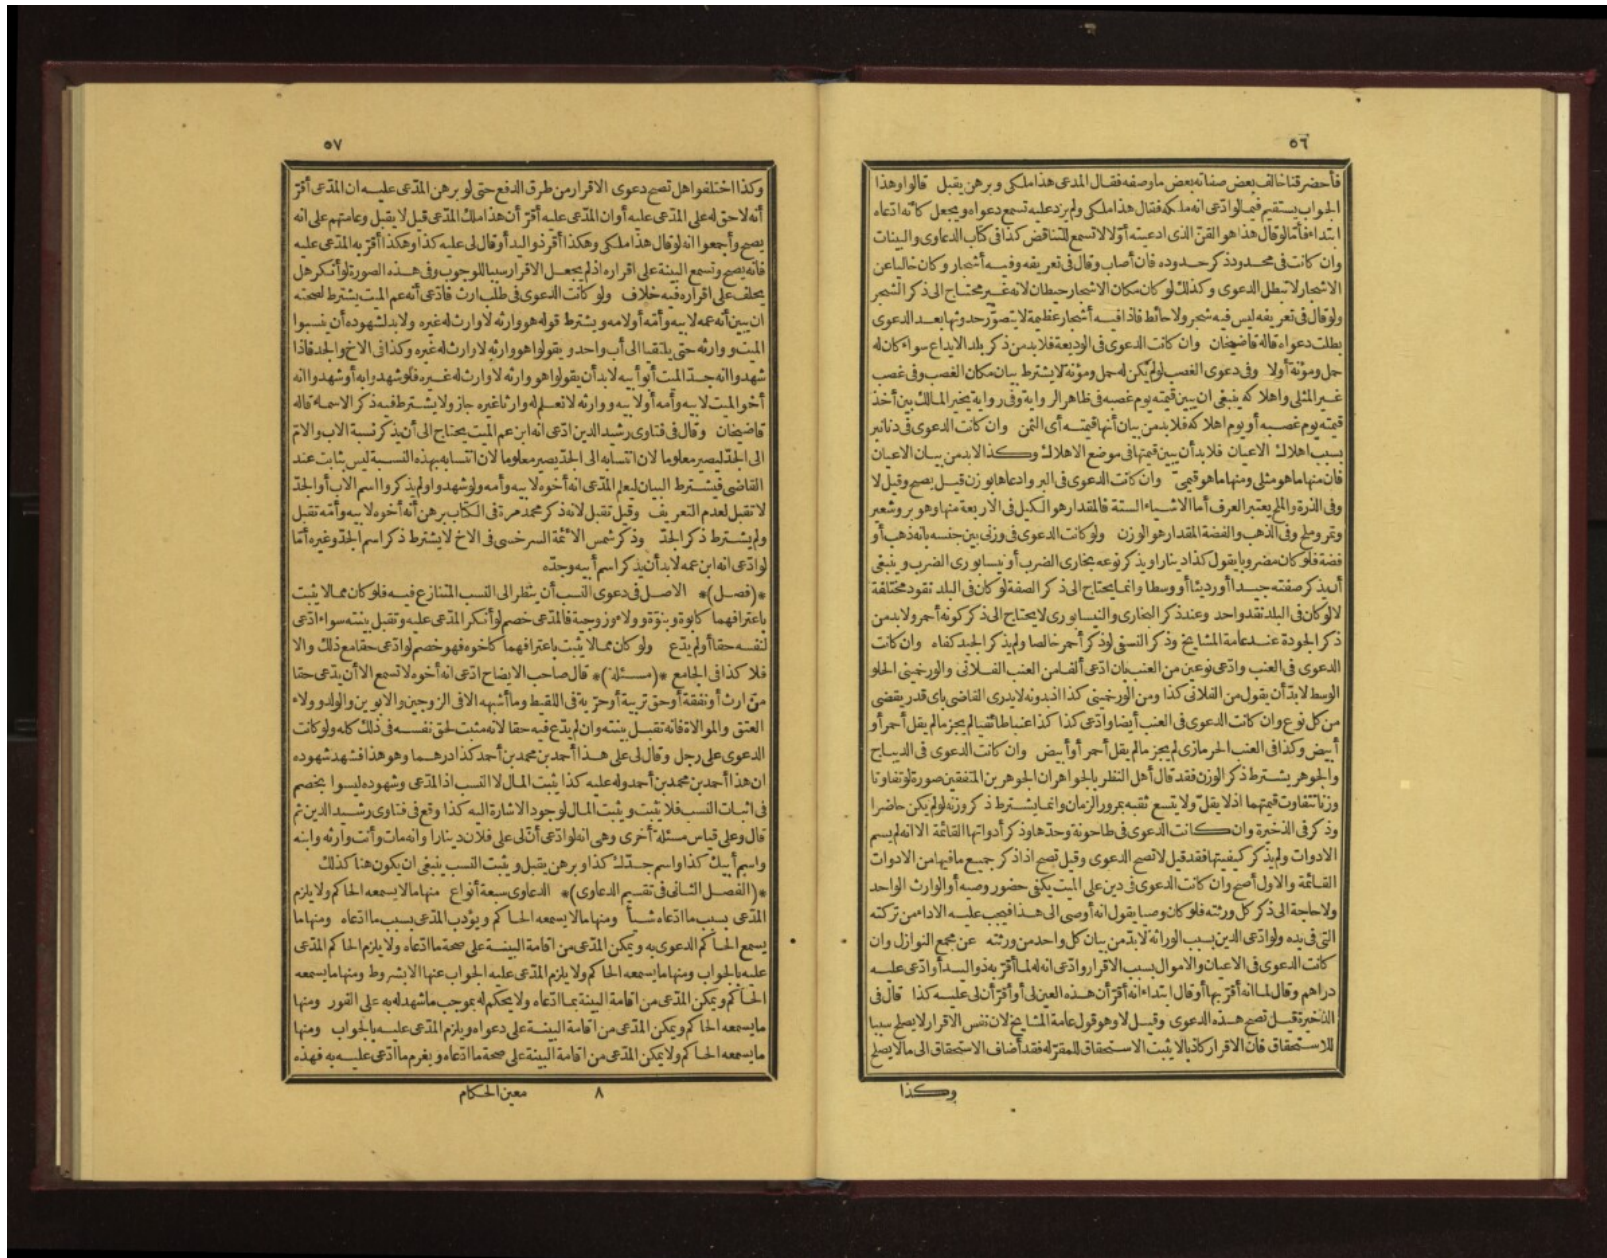 ٥٦
فأحضر قنا خالف بعض صفاته بعض ما وصفه فقال المدعى هذا ملكى وبرهن يقبل قالوا وهذا
الجواب يستقيم فيما لو ادعى انه ملكه فقال هذا ملكى ولم يزد عليه تسمع دعواه ويجعل كأنه ادعاه
ابتداء فأمّا لو قال هذا هو القنّ الذى ادعيته أوّلا لا تسمع للتناقض كذا فى كتاب الدعاوى والبينات
وان كانت فى محدود ذكر حدوده فان أصاب وقال فى تعريفه وفيه أشجار وكان خاليا عن
الاشجار لا تبطل الدعوى وكذلك لو كان مكان الاشجار حيطان لانه غير محتاج الى ذكر الشجر
ولو قال فى تعريفه ليس فيه شجر ولا حائط فاذا فيه أشجار عظيمة لا يتصوّر حدوثها بعد الدعوى
بطلت دعواه قاله قاضيخان وان كانت الدعوى فى الوديعة فلا بد من ذكر بلد الايداع سواء كان له
حمل ومؤنة أولا وفى دعوى الغصب لو لم يكن له حمل ومؤنة لا يشترط بيان مكان الغصب وفى غصب
غير المثلى واهلاكه ينبغى ان يبين قيمته يوم غصبه فى ظاهر الرواية وفى رواية يخير المالك بين أخذ
قيمته يوم غصبه أو يوم اهلاكه فلا بد من بيان أنها قيمته أى الثمن وان كانت الدعوى فى دنانير
بسبب اهلاك الاعيان فلا بد أن يبين قيمتها فى موضع الاهلاك وكذا لا بد من بيان الاعيان
فان منها ما هو مثلى ومنها ما هو قيمى وان كانت الدعوى فى البر وادعاها بوزن قيل يصح وقيل لا
وفى الذرة والملح يعتبر العرف أما الاشياء الستة فالمقدار هو الكيل فى الاربعة منها وهو بر وشعير
وتمر وملح وفى الذهب والفضة المقدار هو الوزن ولو كانت الدعوى فى وزنى بين جنسه بانه ذهب أو
فضة فلو كان مضروبا يقول كذا دينارا ويذكر نوعه بخارى الضرب أو نيسابورى الضرب وينبغى
أن يذكر صفته جيدا أو رديئا أو وسطا وانما يحتاج الى ذكر الصفة لو كان فى البلد نقود مختلفة
لا لو كان فى البلد نقد واحد وعند ذكر البخارى والنيسابورى لا يحتاج الى ذكر كونه أحمر ولا بد من
ذكر الجودة عند عامة المشايخ وذكر النسفى لو ذكر أحمر خالصا ولم يذكر الجيد كفاه وان كانت
الدعوى فى العنب وادّعى نوعين من العنب بان ادّعى ألف من العنب الفلانى والورخمينى الحلو
الوسط لا بدّ أن يقول من الفلانى كذا ومن الورخمينى كذا اذ بدونه لا يدرى القاضى باى قدر يقضى
من كل نوع وان كانت الدعوى فى العنب أيضا وادّعى كذا كذا عنبا طائفيا لم يجز ما لم يقل أحمر أو
أبيض وكذا فى العنب الحرمازى لم يجز ما لم يقل أحمر أو أبيض وان كانت الدعوى فى الديباج
والجوهر يشترط ذكر الوزن فقد قال أهل النظر بالجواهر ان الجوهرين المتفقين صورة لو تفاوتا
وزنا تتفاوت قيمتهما اذ لا يقلّ ولا يتسع ثقبه بمرور الزمان وانما يشترط ذكر وزنه لو لم يكن حاضرا
وذكر فى الذخيرة وان كانت الدعوى فى طاحونة وحدّها وذكر أدواتها القائمة الا انه لم يسم
الادوات ولم يذكر كيفيتها فقد قيل لا تصح الدعوى وقيل تصح اذا ذكر جميع ما فيها من الادوات
القائمة والاول أصح وان كانت الدعوى فى دين على الميت يكفى حضور وصيه أو الوارث الواحد
ولا حاجة الى ذكر كل ورثته فلو كان وصيا يقول انه أوصى الى هذا فيجب عليه الاداء من تركته
التى فى يده ولو ادّعى الدين بسبب الوراثة لا بدّ من بيان كل واحد من ورثته عن مجمع النوازل وان
كانت الدعوى فى الاعيان والاموال بسبب الاقرار وادّعى انه له لما أقرّ به ذو اليد أو ادّعى عليه
دراهم وقال لما انه أقرّ بها أو قال ابتداء انه أقرّ أن هذه العين لى أو أقرّ أن لى عليه كذا قال فى
الذخيرة قيل تصح هذه الدعوى وقيل لا وهو قول عامة المشايخ لان نفس الاقرار لا يصلح سببا
للاستحقاق فان الاقرار كاذبا لا يثبت الاستحقاق للمقرّ له فقد أضاف الاستحقاق الى ما لا يصلح
وكذا
٥٧
وكذا اختلفوا هل تصح دعوى الاقرار من طرق الدفع حتى لو برهن المدّعى عليه ان المدّعى أقرّ
أنه لا حق له على المدّعى عليه أو ان المدّعى عليه أقرّ أن هذا ملك المدّعى قيل لا يقبل وعامتهم على انه
يصح وأجمعوا انه لو قال هذا ملكى وهكذا أقرّ ذو اليد أو قال لى عليه كذا وهكذا أقرّ به المدّعى عليه
فانه يصح وتسمع البينة على اقراره اذ لم يجعل الاقرار سببا للوجوب وفى هذه الصورة لو أنكر هل
يحلف على اقراره فيه خلاف ولو كانت الدعوى فى طلب ارث فادّعى أنه عم الميت يشترط لصحته
ان يبين أنه عمه لابيه وأمّه أو لامه ويشترط قوله هو وارثه لا وارث له غيره ولا بد لشهوده أن ينسبوا
الميت ووارثه حتى يلتقيا الى أب واحد ويقولوا هو وارثه لا وارث له غيره وكذا فى الاخ والجد فاذا
شهدوا انه جدّ الميت أبو أبيه لا بد أن يقولوا هو وارثه لا وارث له غيره فلو شهدوا به أو شهدوا انه
أخو الميت لابيه وأمه أو لابيه ووارثه لا نعلم له وارثا غيره جاز ولا يشترط فيه ذكر الاسماء قاله
قاضيخان وقال فى فتاوى رشيد الدين ادّعى انه ابن عم الميت يحتاج الى أن يذكر نسبة الاب والامّ
الى الجدّ ليصير معلوما لان انتسابه الى الجدّ يصير معلوما لان انتسابه بهذه النسبة ليس بثابت عند
القاضى فيشترط البيان ليعلم المدّعى انه أخوه لابيه وأمه ولو شهدوا ولم يذكروا اسم الاب أو الجدّ
لا تقبل لعدم التعريف وقيل تقبل لانه ذكر محمد مرة فى الكتاب برهن أنه أخوه لابيه وأمّه تقبل
ولم يشترط ذكر الجدّ وذكر شمس الائمّة السرخسى فى الاخ لا يشترط ذكر اسم الجدّ وغيره أمّا
لو ادّعى انه ابن عمه لا بد أن يذكر اسم أبيه وجدّه
*(فصل)* الاصل فى دعوى النسب أن ينظر الى النسب المتنازع فيه فلو كان مما لا يثبت
باعترافهما كابوة وبنوّة وولاء وزوجية فالمدّعى خصم لو أنكر المدّعى عليه وتقبل بينته سواء ادّعى
لنفسه حقا أو لم يدّع ولو كان مما لا يثبت باعترافهما كاخوه فهو خصم لو ادّعى حقا مع ذلك والا
فلا كذا فى الجامع *(مسئلة)* قال صاحب الايضاح ادّعى انه أخوه لا تسمع الا أن يدّعى حقا
من ارث أو نفقة أو حق تربية أو حرّية فى اللقيط وما أشبهه الا فى الزوجين والابوين والولد وولاء
العتق والموالاة فانه تقبل بينته وان لم يدّع فيه حقا لانه مثبت لحق نفسه فى ذلك كله ولو كانت
الدعوى على رجل وقال لى على هذا أحمد بن محمد بن أحمد كذا درهما وهو هذا فشهد شهوده
ان هذا أحمد بن محمد بن أحمد وله عليه كذا يثبت المال لا النسب اذ المدّعى وشهوده ليسوا بخصم
فى اثبات النسب فلا يثبت ويثبت المال لوجود الاشارة اليه كذا وقع فى فتاوى رشيد الدين ثم
قال وعلى قياس مسئلة أخرى وهى انه لو ادّعى أن لى على فلان دينارا وانه مات وأنت وارثه وابنه
واسم أبيك كذا واسم جدّك كذا وبرهن يقبل ويثبت النسب ينبغى ان يكون هنا كذلك
*(الفصل الثانى فى تقسيم الدعاوى)* الدعاوى سبعة أنواع منها ما لا يسمعه الحاكم ولا يلزم
المدّعى بسبب ما ادّعاه شيأ ومنها ما لا يسمعه الحاكم ويؤدب المدّعى بسبب ما ادّعاه ومنها ما
يسمع الحاكم الدعوى به ويمكن المدّعى من اقامة البينة على صحة ما ادّعاه ولا يلزم الحاكم المدّعى
عليه بالجواب ومنها ما يسمعه الحاكم ولا يلزم المدّعى عليه الجواب عنها الا بشروط ومنها ما يسمعه
الحاكم ويمكن المدّعى من اقامة البينة بما ادّعاه ولا يحكم له بموجب ما شهد له به على الفور ومنها
ما يسمعه الحاكم ويمكن المدّعى من اقامة البينة على دعواه ويلزم المدّعى عليه بالجواب ومنها
ما يسمعه الحاكم ولا يمكن المدّعى من اقامة البينة على صحة ما ادّعاه ويغرم ما ادّعى عليه به فهذه
٨ معين الحكام